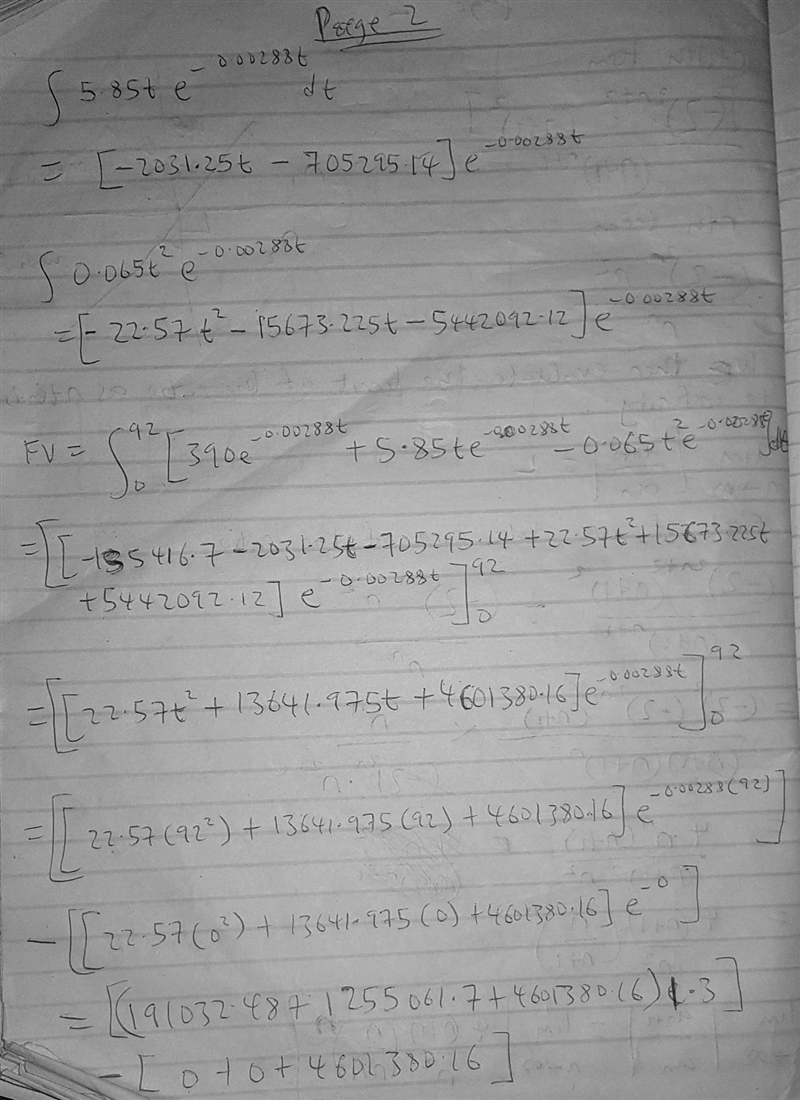 Page 2
∫ 5.85t e^{-0.00288t} dt
= [-2031.25t - 705295.14] e^{-0.00288t}
∫ 0.065t² e^{-0.00288t}
= [-22.57t² - 15673.225t - 5442092.12] e^{-0.00288t}
FV = ∫_0^{92} [390e^{-0.00288t} + 5.85te^{-0.00288t} - 0.065t²e^{-0.00288t}]dt
= [[-135416.7 - 2031.25t - 705295.14 + 22.57t² + 15673.225t
+ 5442092.12] e^{-0.00288t}]_0^{92}
= [[22.57t² + 13641.975t + 4601380.16] e^{-0.00288t}]_0^{92}
= [[22.57(92²) + 13641.975(92) + 4601380.16] e^{-0.00288(92)}]
- [[22.57(0²) + 13641.975(0) + 4601380.16] e^{-0}]
= [(191032.48 + 1255061.7 + 4601380.16) 1.3]
- [0 + 0 + 4601380.16]